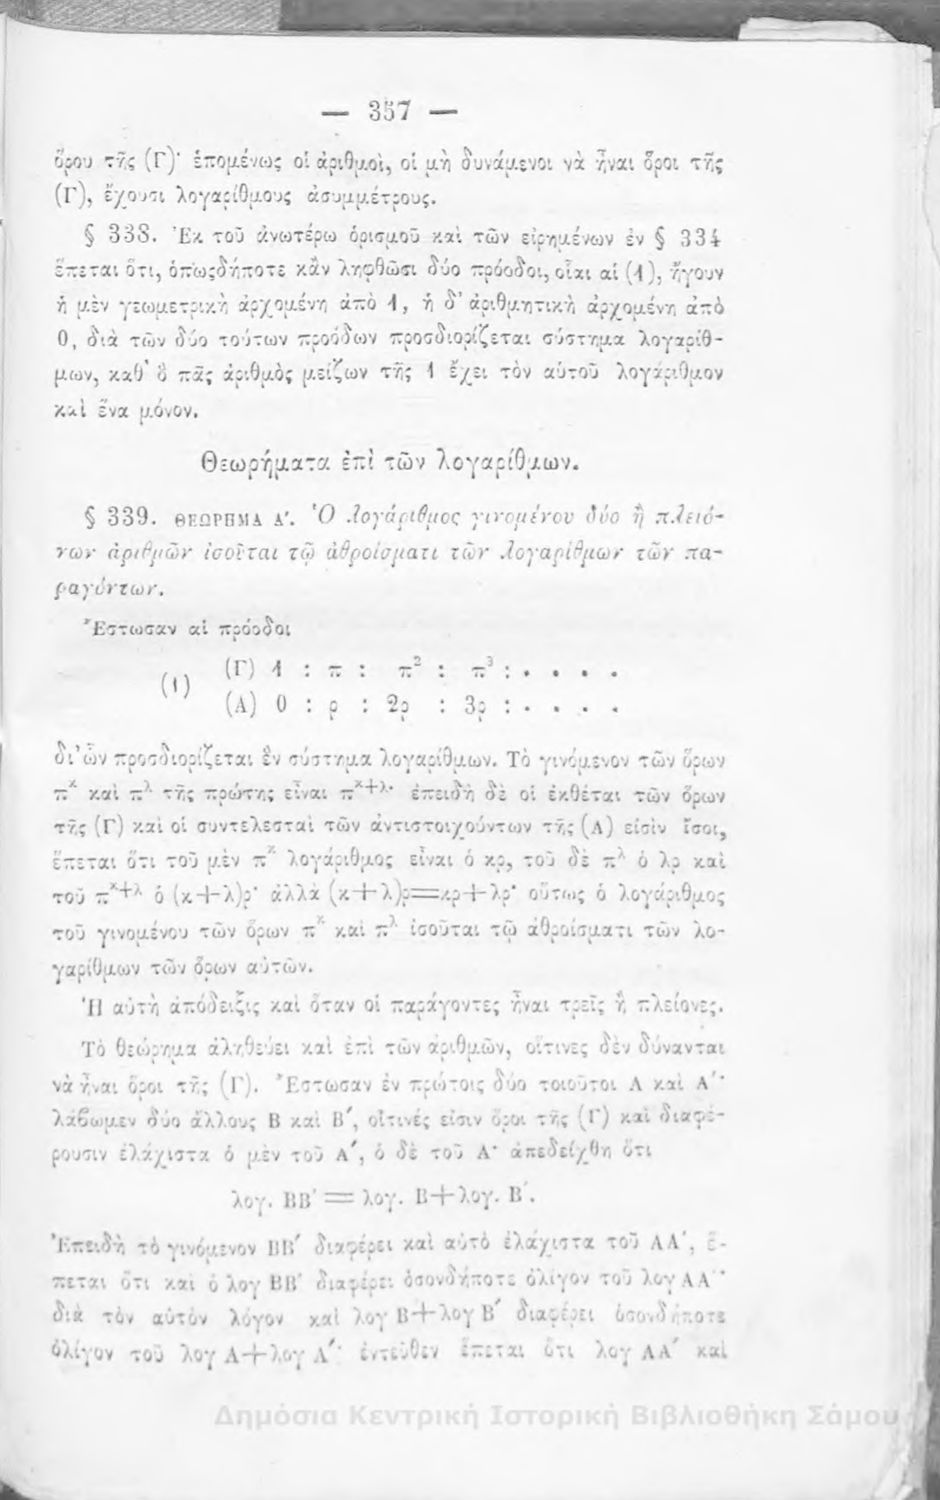 — 357 —
ὅρου τῆς (Γ)· ἑπομένως οἱ ἀριθμοὶ, οἱ μὴ δυνάμενοι νὰ ἦναι ὅροι τῆς
(Γ), ἔχουσι λογαρίθμους ἀσυμμέτρους.
§ 338. Ἐκ τοῦ ἀνωτέρω ὁρισμοῦ καὶ τῶν εἰρημένων ἐν § 334
ἕπεται ὅτι, ὁπωςδήποτε κἂν ληφθῶσι δύο πρόοδοι, οἷαι αἱ (1), ἤγουν
ἡ μὲν γεωμετρικὴ ἀρχομένη ἀπὸ 1, ἡ δ᾽ ἀριθμητικὴ ἀρχομένη ἀπὸ
0, διὰ τῶν δύο τούτων προόδων προσδιορίζεται σύστημα λογαρίθ-
μων, καθ᾽ ὃ πᾶς ἀριθμὸς μείζων τῆς 1 ἔχει τὸν αὑτοῦ λογάριθμον
καὶ ἕνα μόνον.
Θεωρήματα ἐπὶ τῶν λογαρίθμων.
§ 339. ΘΕΩΡΗΜΑ Α′. Ὁ λογάριθμος γινομένου δύο ἢ πλειό-
νων ἀριθμῶν ἰσοῦται τῷ ἀθροίσματι τῶν λογαρίθμων τῶν πα-
ραγόντων.
Ἔστωσαν αἱ πρόοδοι
(1) (Γ) 1 : π : π² : π³ : . . . .
(Α) 0 : ρ : 2ρ : 3ρ : . . . .
δι᾽ ὧν προσδιορίζεται ἓν σύστημα λογαρίθμων. Τὸ γινόμενον τῶν ὅρων
π^κ καὶ π^λ τῆς πρώτης εἶναι π^κ+λ· ἐπειδὴ δὲ οἱ ἐκθέται τῶν ὅρων
τῆς (Γ) καὶ οἱ συντελεσταὶ τῶν ἀντιστοιχούντων τῆς (Α) εἰσὶν ἴσοι,
ἕπεται ὅτι τοῦ μὲν π^κ λογάριθμος εἶναι ὁ κρ, τοῦ δὲ π^λ ὁ λρ καὶ
τοῦ π^κ+λ ὁ (κ+λ)ρ· ἀλλὰ (κ+λ)ρ=κρ+λρ· οὕτως ὁ λογάριθμος
τοῦ γινομένου τῶν ὅρων π^κ καὶ π^λ ἰσοῦται τῷ ἀθροίσματι τῶν λο-
γαρίθμων τῶν ὅρων αὐτῶν.
Ἡ αὐτὴ ἀπόδειξις καὶ ὅταν οἱ παράγοντες ἦναι τρεῖς ἢ πλείονες.
Τὸ θεώρημα ἀληθεύει καὶ ἐπὶ τῶν ἀριθμῶν, οἵτινες δὲν δύνανται
νὰ ἦναι ὅροι τῆς (Γ). Ἔστωσαν ἐν πρώτοις δύο τοιοῦτοι Α καὶ Α′·
λάβωμεν δύο ἄλλους Β καὶ Β′, οἵτινές εἰσιν ὅροι τῆς (Γ) καὶ διαφέ-
ρουσιν ἐλάχιστα ὁ μὲν τοῦ Α′, ὁ δὲ τοῦ Α· ἀπεδείχθη ὅτι
λογ. ΒΒ′ = λογ. Β+λογ. Β′.
Ἐπειδὴ τὸ γινόμενον ΒΒ′ διαφέρει καὶ αὐτὸ ἐλάχιστα τοῦ ΑΑ′, ἕ-
πεται ὅτι καὶ ὁ λογ ΒΒ′ διαφέρει ὁσονδήποτε ὀλίγον τοῦ λογ ΑΑ′·
διὰ τὸν αὐτὸν λόγον καὶ λογ Β+λογ Β′ διαφέρει ὁσονδήποτε
ὀλίγον τοῦ λογ Α+λογ Α′· ἐντεῦθεν ἕπεται ὅτι λογ ΑΑ′ καὶ
Δημόσια Κεντρική Ιστορική Βιβλιοθήκη Σάμου